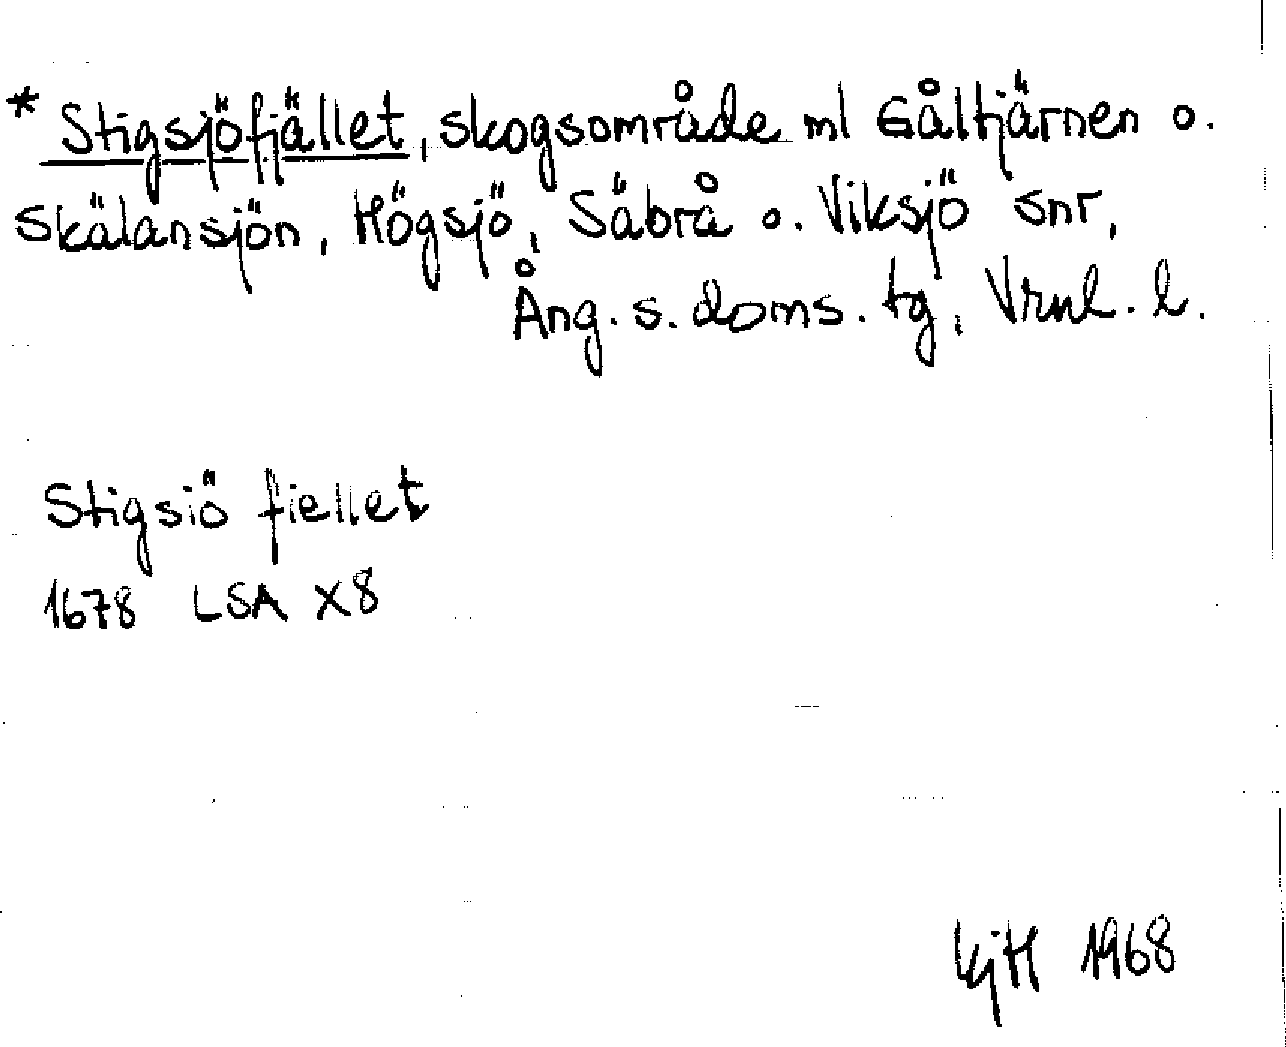 * Stigsjöfjället, skogsområde ml Gåltjärnen o.
Skälansjön, Högsjö, Säbrå o. Viksjö snr,
Ång. s. doms. tg, Vrnl. l.
Stigsiö fiellet
1678 LSA X8
KjH 1968